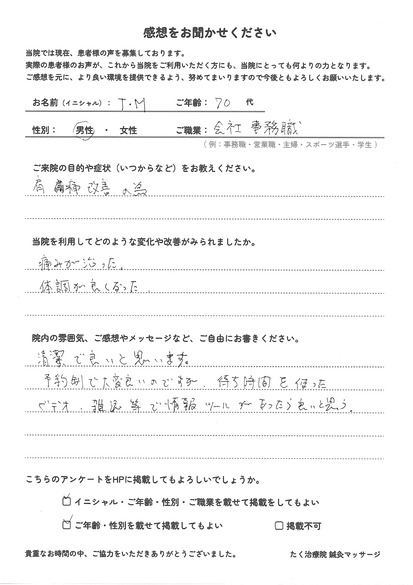 感想をお聞かせください
当院では現在、患者様の声を募集しております。
実際の患者様のお声が、これから当院をご利用いただく方にも、当院にとっても何よりの力となります。
ご感想を元に、より良い環境を提供できるよう、努めてまいりますので今後ともよろしくお願いいたします。
お名前（イニシャル）： T・M ご年齢： 70 代
性別： 男性 ・ 女性 ご職業： 会社 事務職
（ 例：事務職・営業職・主婦・スポーツ選手・学生 ）
ご来院の目的や症状（いつからなど）をお教えください。
肩 痛 改善 の為
当院を利用してどのような変化や改善がみられましたか。
痛みが治った。
体調が良くなった。
院内の雰囲気、ご感想やメッセージなど、ご自由にお書きください。
清潔で良いと思います。
予約制で大変良いのですが、待ち時間を使った
ビデオ、雑誌等で情報ツールがあったら良いと思う。
こちらのアンケートをHPに掲載してもよろしいでしょうか。
イニシャル・ご年齢・性別・ご職業を載せて掲載をしてもよい
ご年齢・性別を載せて掲載してもよい 掲載不可
貴重なお時間の中、ご協力をいただきありがとうございました。 たく治療院 鍼灸マッサージ